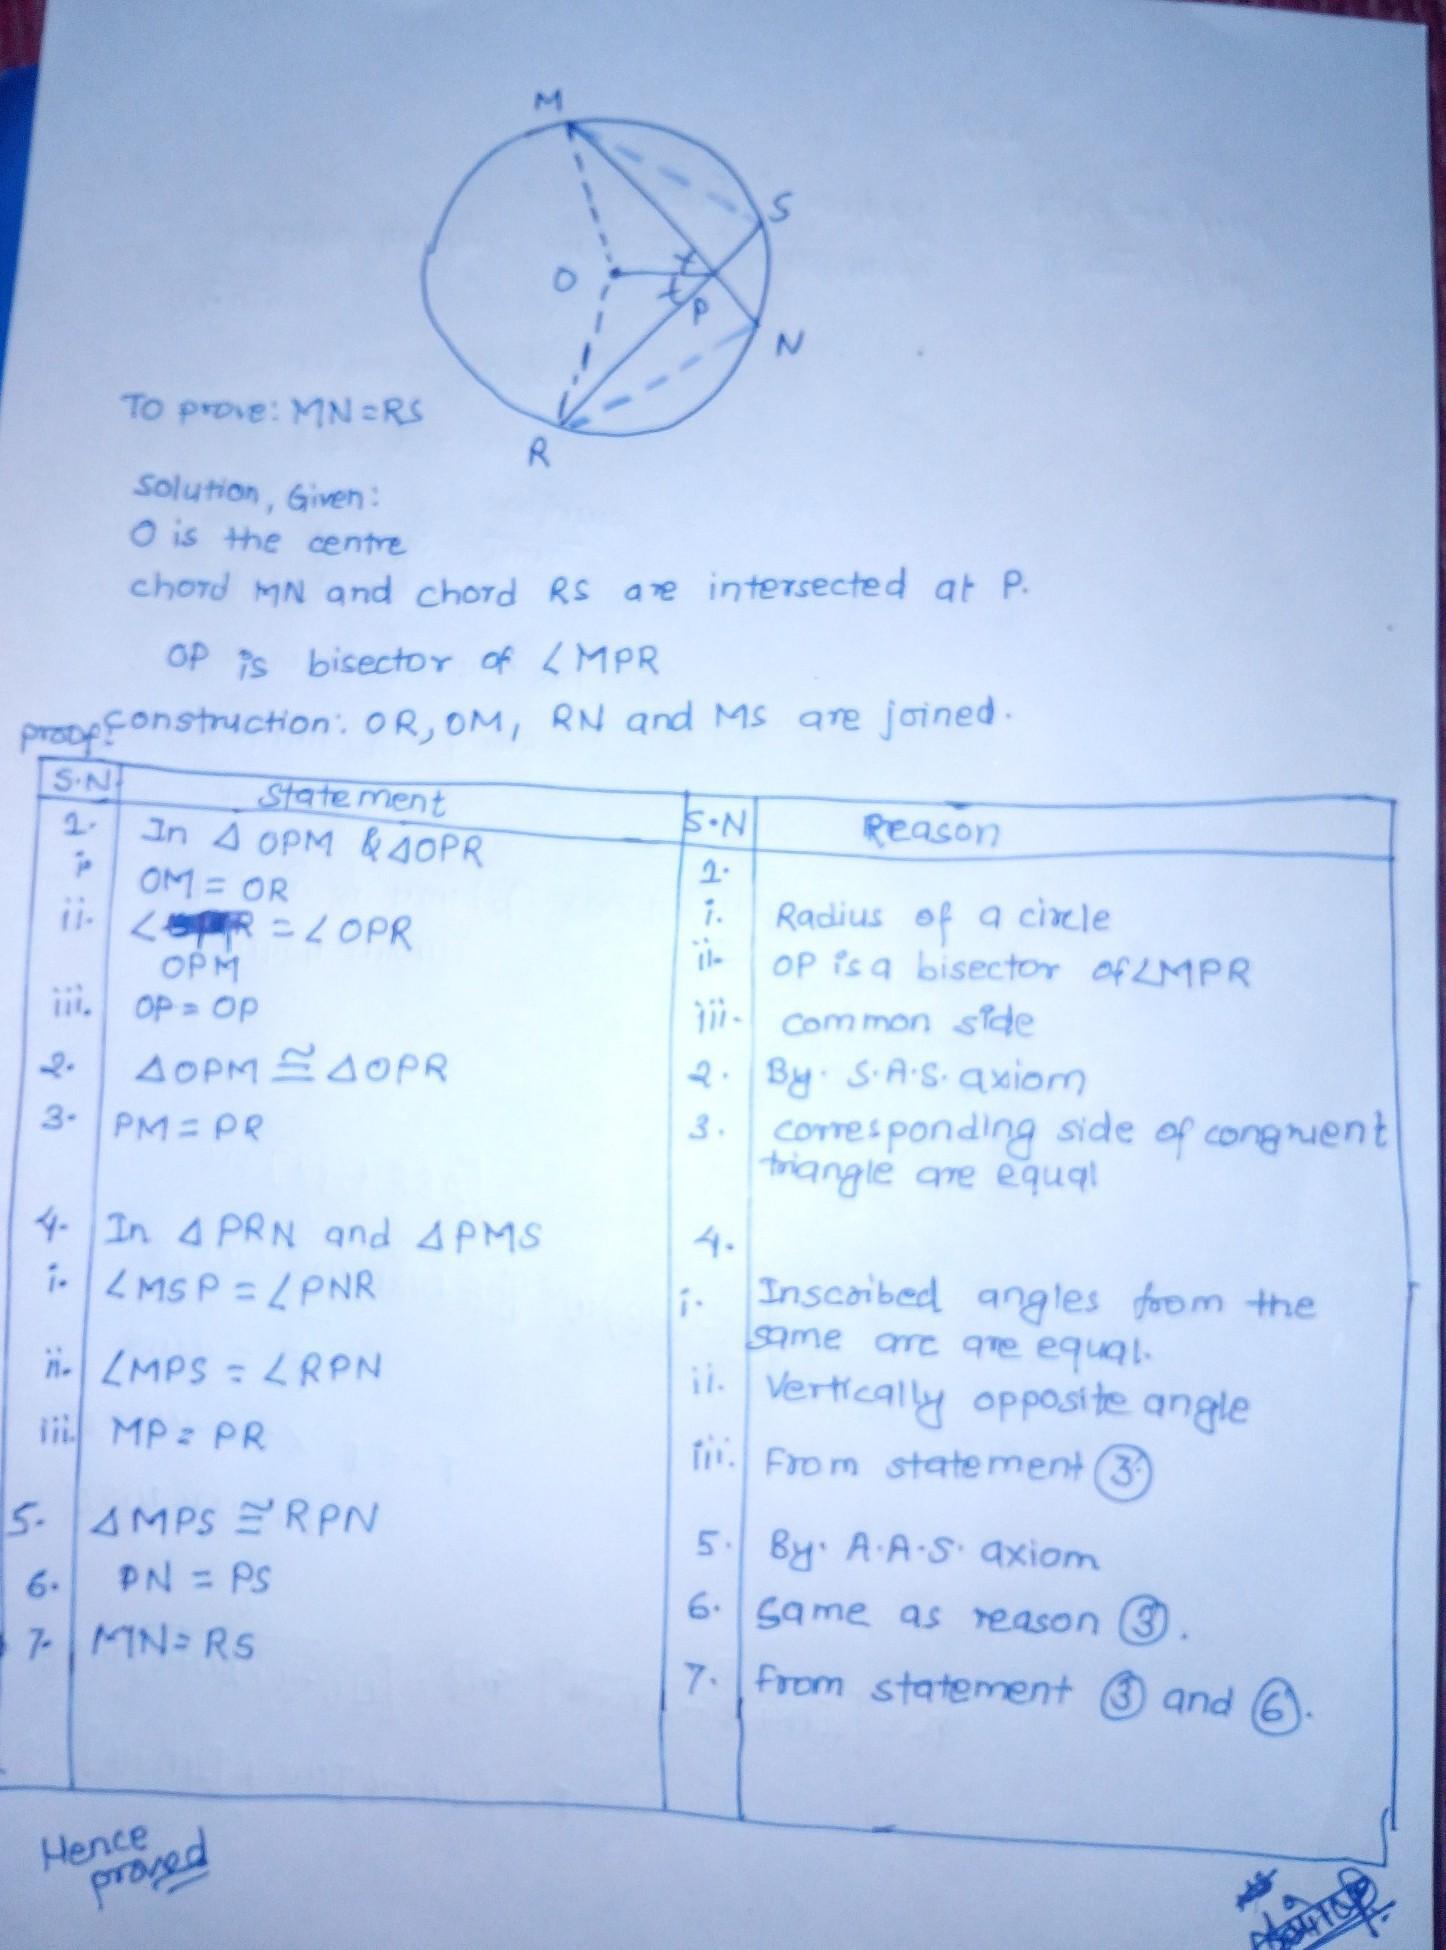 M
S
O
P
N
R
To prove: MN=RS
Solution, Given:
O is the centre
chord MN and chord RS are intersected at P.
OP is bisector of ∠MPR
construction: OR, OM, RN and MS are joined.
proof:
S.N Statement S.N Reason
1. In △ OPM & △OPR 1.
i. OM = OR i. Radius of a circle
ii. ∠ = ∠OPR ii. OP is a bisector of ∠MPR
OPM
iii. OP = OP iii. common side
2. △OPM ≅ △OPR 2. By. S.A.S. axiom
3. PM = PR 3. corresponding side of congruent
triangle are equal
4. In △ PRN and △PMS 4.
i. ∠MSP = ∠PNR i. Inscribed angles from the
same arc are equal.
ii. ∠MPS = ∠RPN ii. Vertically opposite angle
iii. MP = PR iii. From statement ③
5. △MPS ≅ RPN 5. By. A.A.S. axiom
6. PN = PS 6. same as reason ③.
7. MN = RS 7. from statement ③ and ⑥.
Hence
proved